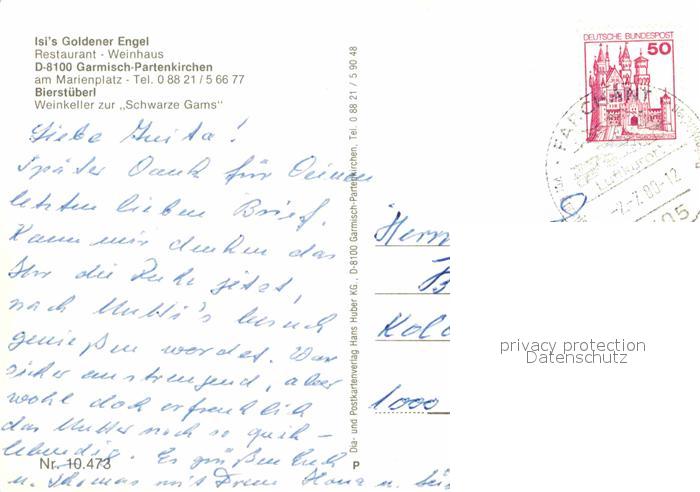 Isi's Goldener Engel
Restaurant - Weinhaus
D-8100 Garmisch-Partenkirchen
am Marienplatz - Tel. 0 88 21 / 5 66 77
Bierstüberl
Weinkeller zur „Schwarze Gams"
Liebe Guita!
Später Dank für Deinen
letzten lieben Brief.
Kann mir denken das
Ihr die Ruhe jetzt,
nach Mutti's besuch
genießen werdet. War
sicher anstrengend, aber
wohl doch erfreulich
das Mutter noch so quik-
lebendig. Es grüßen Euch
u. Thomas mit
Nr. 10.473
Dia- und Postkartenverlag Hans Huber KG., D-8100 Garmisch-Partenkirchen, Tel. 0 88 21 / 5 90 48
P
DEUTSCHE BUNDESPOST
50
FARCHANT
Luftkurort
-2.-7.80-12
105
Herrn
B
Kolo
1000
privacy protection
Datenschutz